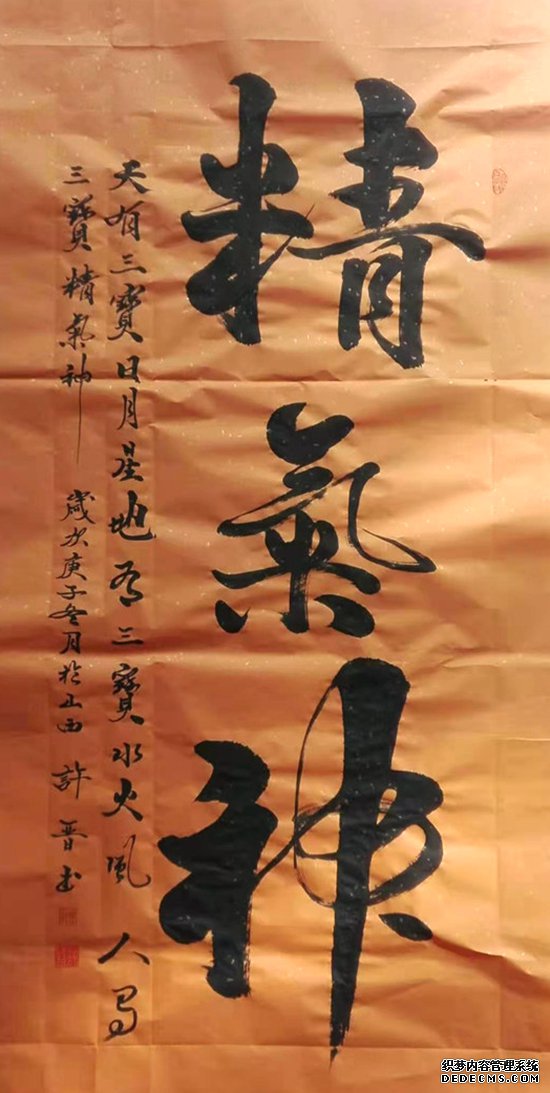 精氣神
天有三寶日月星地有三寶水火風人有
三寶精氣神 歲次庚子冬月於山西 許晋书
织梦内容管理系统
DEDECMS.COM